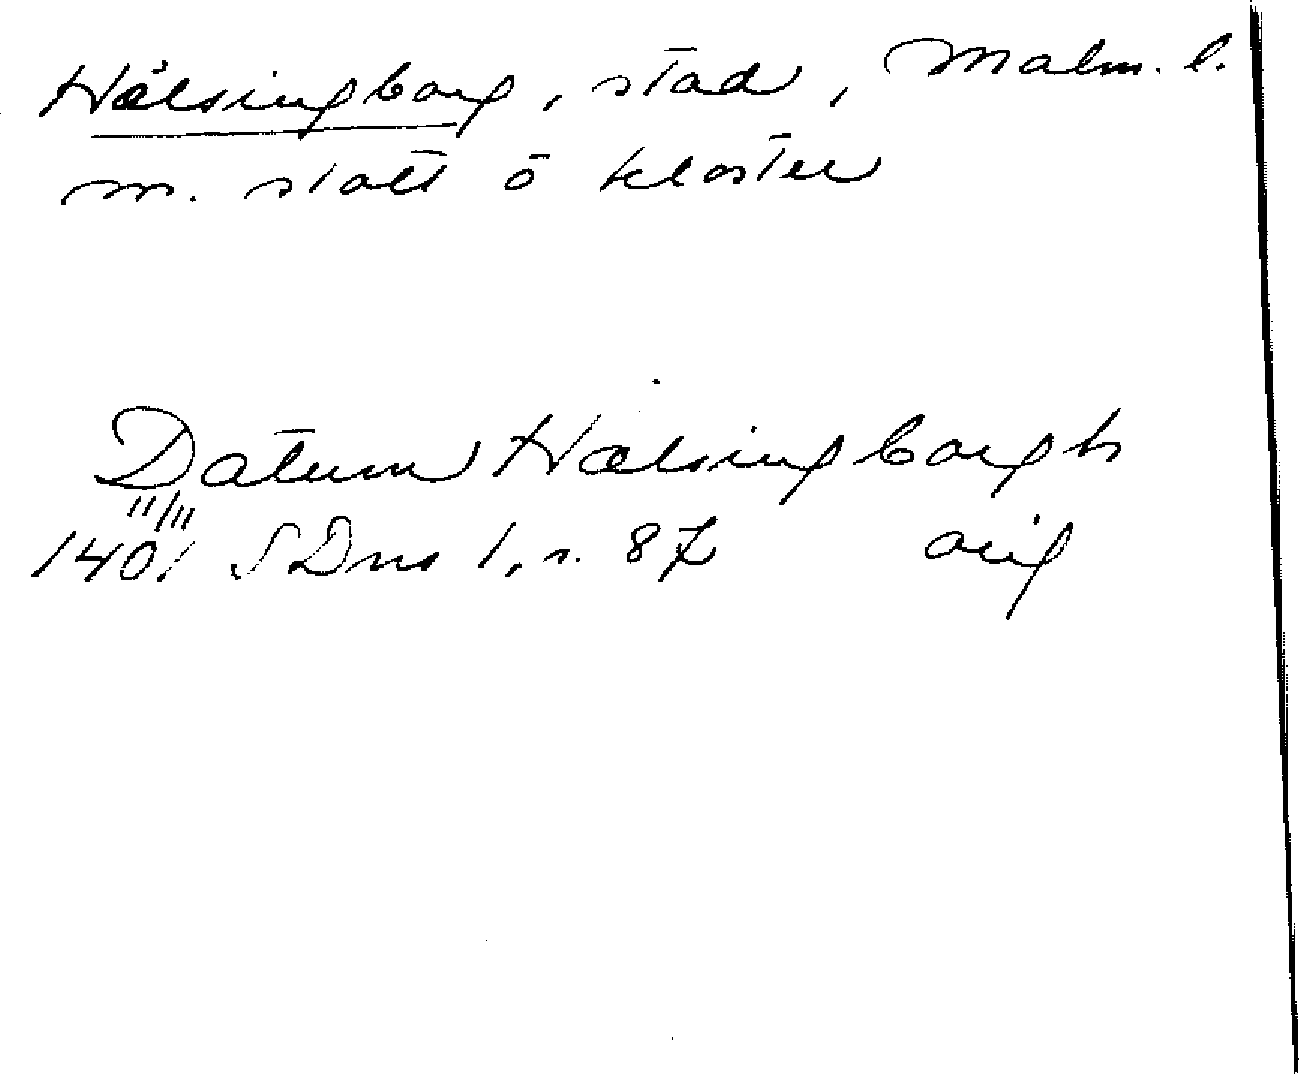 Hälsingborg, stad, Malm. l.
m. slott o kloster
Datum Hælsingborgh
11/111
1401 SDns 1, s. 87 orig